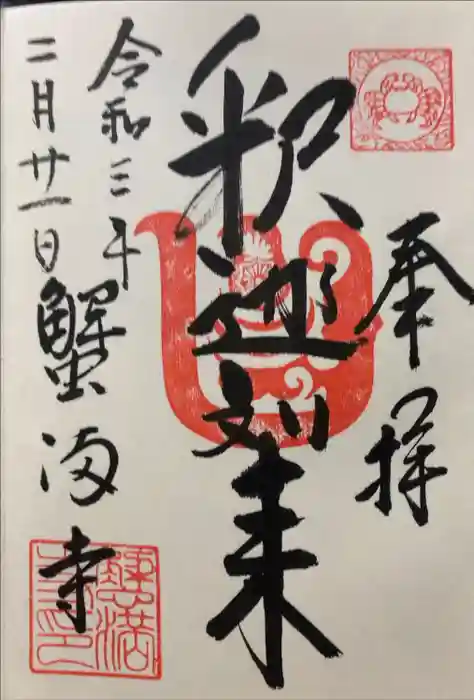 奉拝
釈迦如来
令和三年
二月廿一日
蟹満寺
蟹満寺印